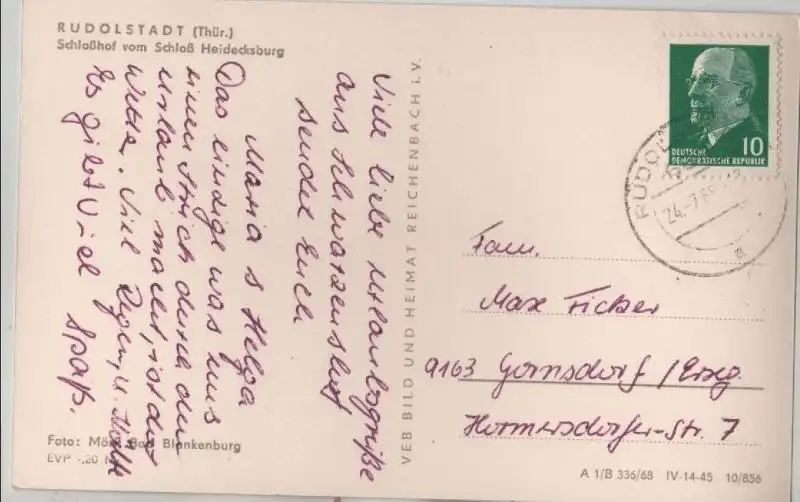 RUDOLSTADT (Thür.)
Schloßhof vom Schloß Heidecksburg
Viele liebe Urlaubsgrüße
aus Schwarzenshof
sendet Euch
Maria & Helga
Das einzige was uns
einen Strich durch den
Urlaub macht, ist das
Wetter. Viel Regen, u.
Es gibt viel Spaß.
Foto: Bad Blankenburg
EVP -,20
VEB BILD UND HEIMAT REICHENBACH i.V.
10
DEUTSCHE
DEMOKRATISCHE REPUBLIK
RUDOL
24.-7.69
a
Fam.
Max Ficker
9163 Gornsdorf / Erzg.
Hormersdorfer-Str. 7
A 1/B 336/68 IV-14-45 10/856